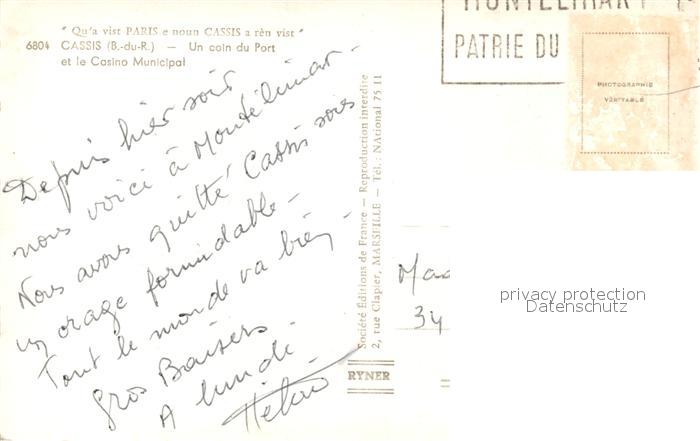 " Qu'a vist PARIS e noun CASSIS a rèn vist "
6804 CASSIS (B.-du-R.) — Un coin du Port
et le Casino Municipal
MONTELIMAR
PATRIE DU
PHOTOGRAPHIE
VERITABLE
Depuis hier soir
nous voici à Montélimar.
Nous avons quitté Cassis sous
un orage formidable -
Tout le monde va bien -
Gros Baisers
A lundi -
Société Éditions de France — Reproduction interdite
2, rue Clapier, MARSEILLE — Tél.: NAtional 75 11
RYNER
Mad
34
privacy protection
Datenschutz